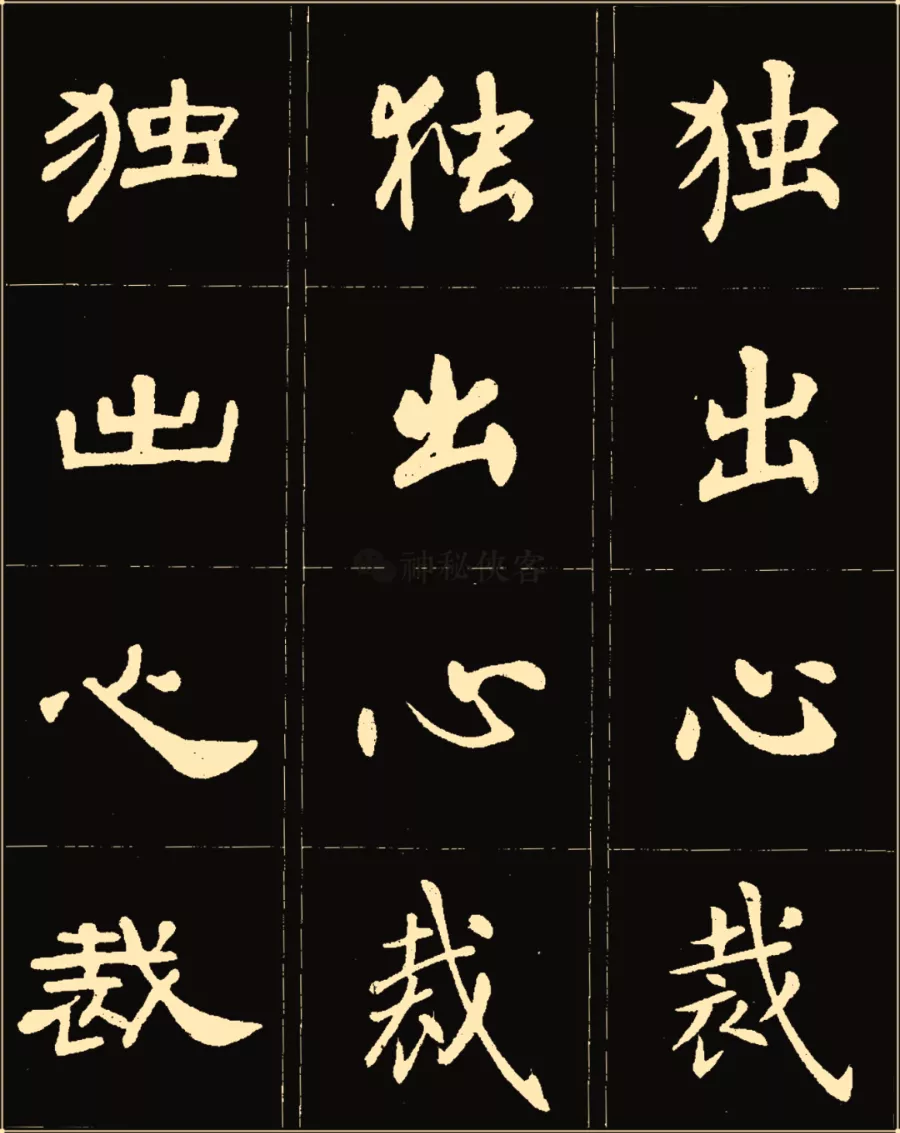 独 独 独
出 出 出
神秘侠客
心 心 心
裁 裁 裁